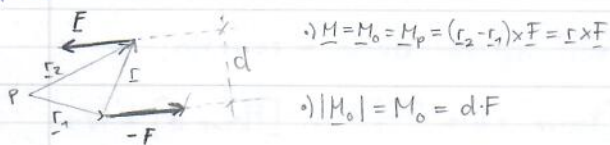 F
r₂
r
d
P
r₁
-F
•) M = M₀ = Mₚ = (r₂-r₁)×F = r×F
•) |M₀| = M₀ = d·F